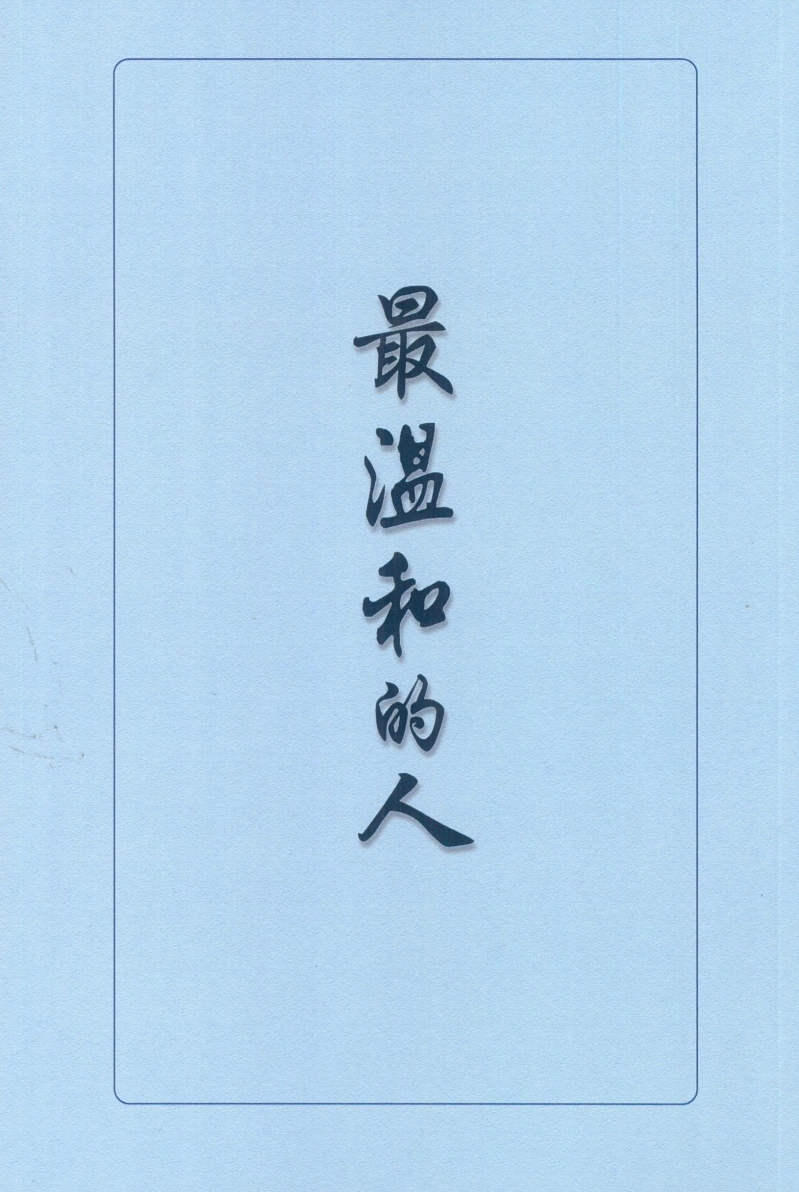 最溫和的人